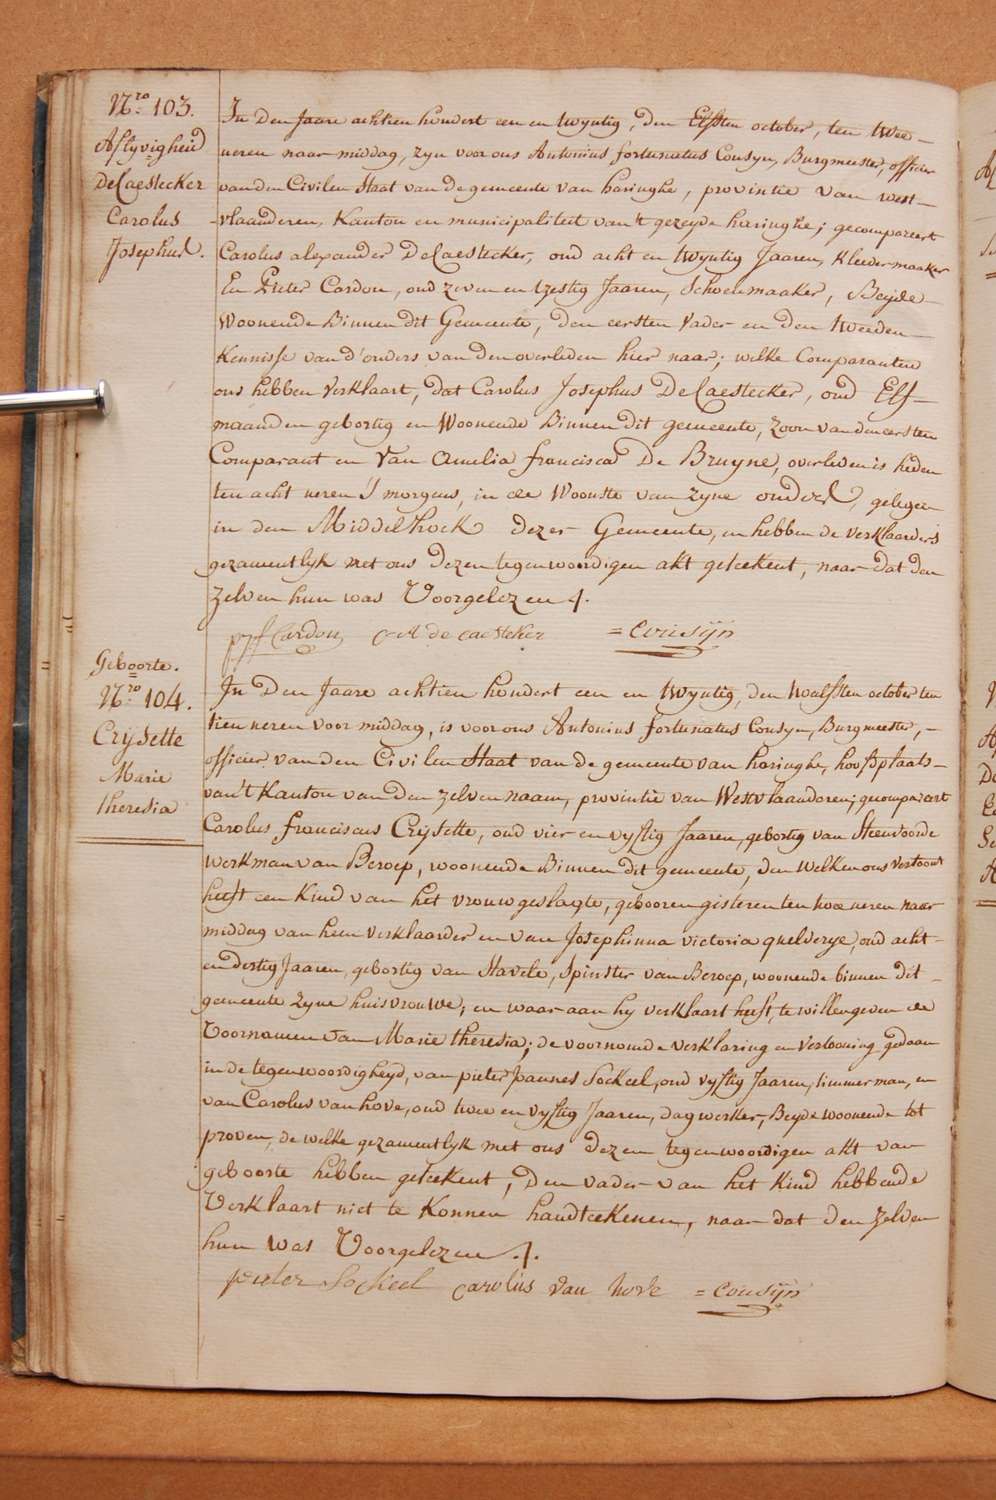 Nro 103.
Aflyvigheid
De Caestecker
Carolus
Josephus.
In Den Jaare achtien hondert een en twyntig, den Elfsten october, ten twee
ueren naar middag, zyn voor ons Antonius fortunatus Cousyn, Burgmeester, officier
van den Civilen Staat van de gemeente van haringhe, provintie van west-
vlaanderen, Kanton en municipaliteit van 't gezeyde haringhe; gecompareert
Carolus alexander De Caestecker, oud acht en twyntig Jaaren, Kleedermaaker
En Pieter Cardon, oud zeven en tzestig Jaaren, Schoenmaaker, Beyde
Woonende Binnen dit Gemeente, den eersten vader en den tweeden
Kennisse van d'ouders van den overleden hier naar; welke Comparanten
ons hebben verklaart, dat Carolus Josephus De Caestecker, oud Elf-
maanden gebortig en Woonende Binnen dit gemeente, zoon van den eersten
Comparant en van Amelia francisca De Bruyne, overleden is heden
ten acht ueren 's morgens, in de Woonste van zyne ouders, gelegen
in den Middelhoek dezer Gemeente, en hebben de verklaarders
gezamentlyk met ons Dezen tegenwoordigen akt geteekent, naar dat den
zelven hun was Voorgelezen ./.
Cardon C A de caesteker = Cousijn
Geboorte.
Nro 104.
Crijsette
Marie
theresia
In Den Jaare achtien hondert een en twyntig, den twalfsten october ten
tien ueren voor middag, is voor ons Antonius fortunatus Cousyn, Burgmeester,
officier van den Civilen Staat van de gemeente van haringhe, hoofdplaats-
van 't Kanton van den zelven naam, provintie van Westvlaanderen; gecompareert
Carolus franciscus Crijsette, oud vier en vyftig Jaaren, gebortig van Steenvoorde
werkman van Beroep, woonende Binnen dit gemeente, den welken ons vertoont
heeft een Kind van het vrouwgeslagte, gebooren gisteren ten twee ueren naar
middag van hem verklaarder en van Josephinna victoria quelderye, oud acht-
en dertig Jaaren, gebortig van Stavele, Spinster van Beroep, woonende binnen dit
gemeente zyne huisvrouwe, en waar aan hy verklaart heeft, te willen geven de
Voornamen van Marie theresia; de voornomde verklaring en vertooning gedaan
in de tegenwoordigheyd, van pieter Joannes Sockeel, oud vyftig Jaaren, timmerman, en
van Carolus van hove, oud twee en vyftig Jaaren, dagwerker, Beyde woonende tot
proven, de welke gezamentlyk met ons dezen tegenwoordigen akt van
geboorte hebben geteekent, Den vader van het kind hebbende
Verklaart niet te Konnen handteekenen, naar dat den zelven
hun was Voorgelezen ./.
pieter Sockeel carolus van hove = Cousijn